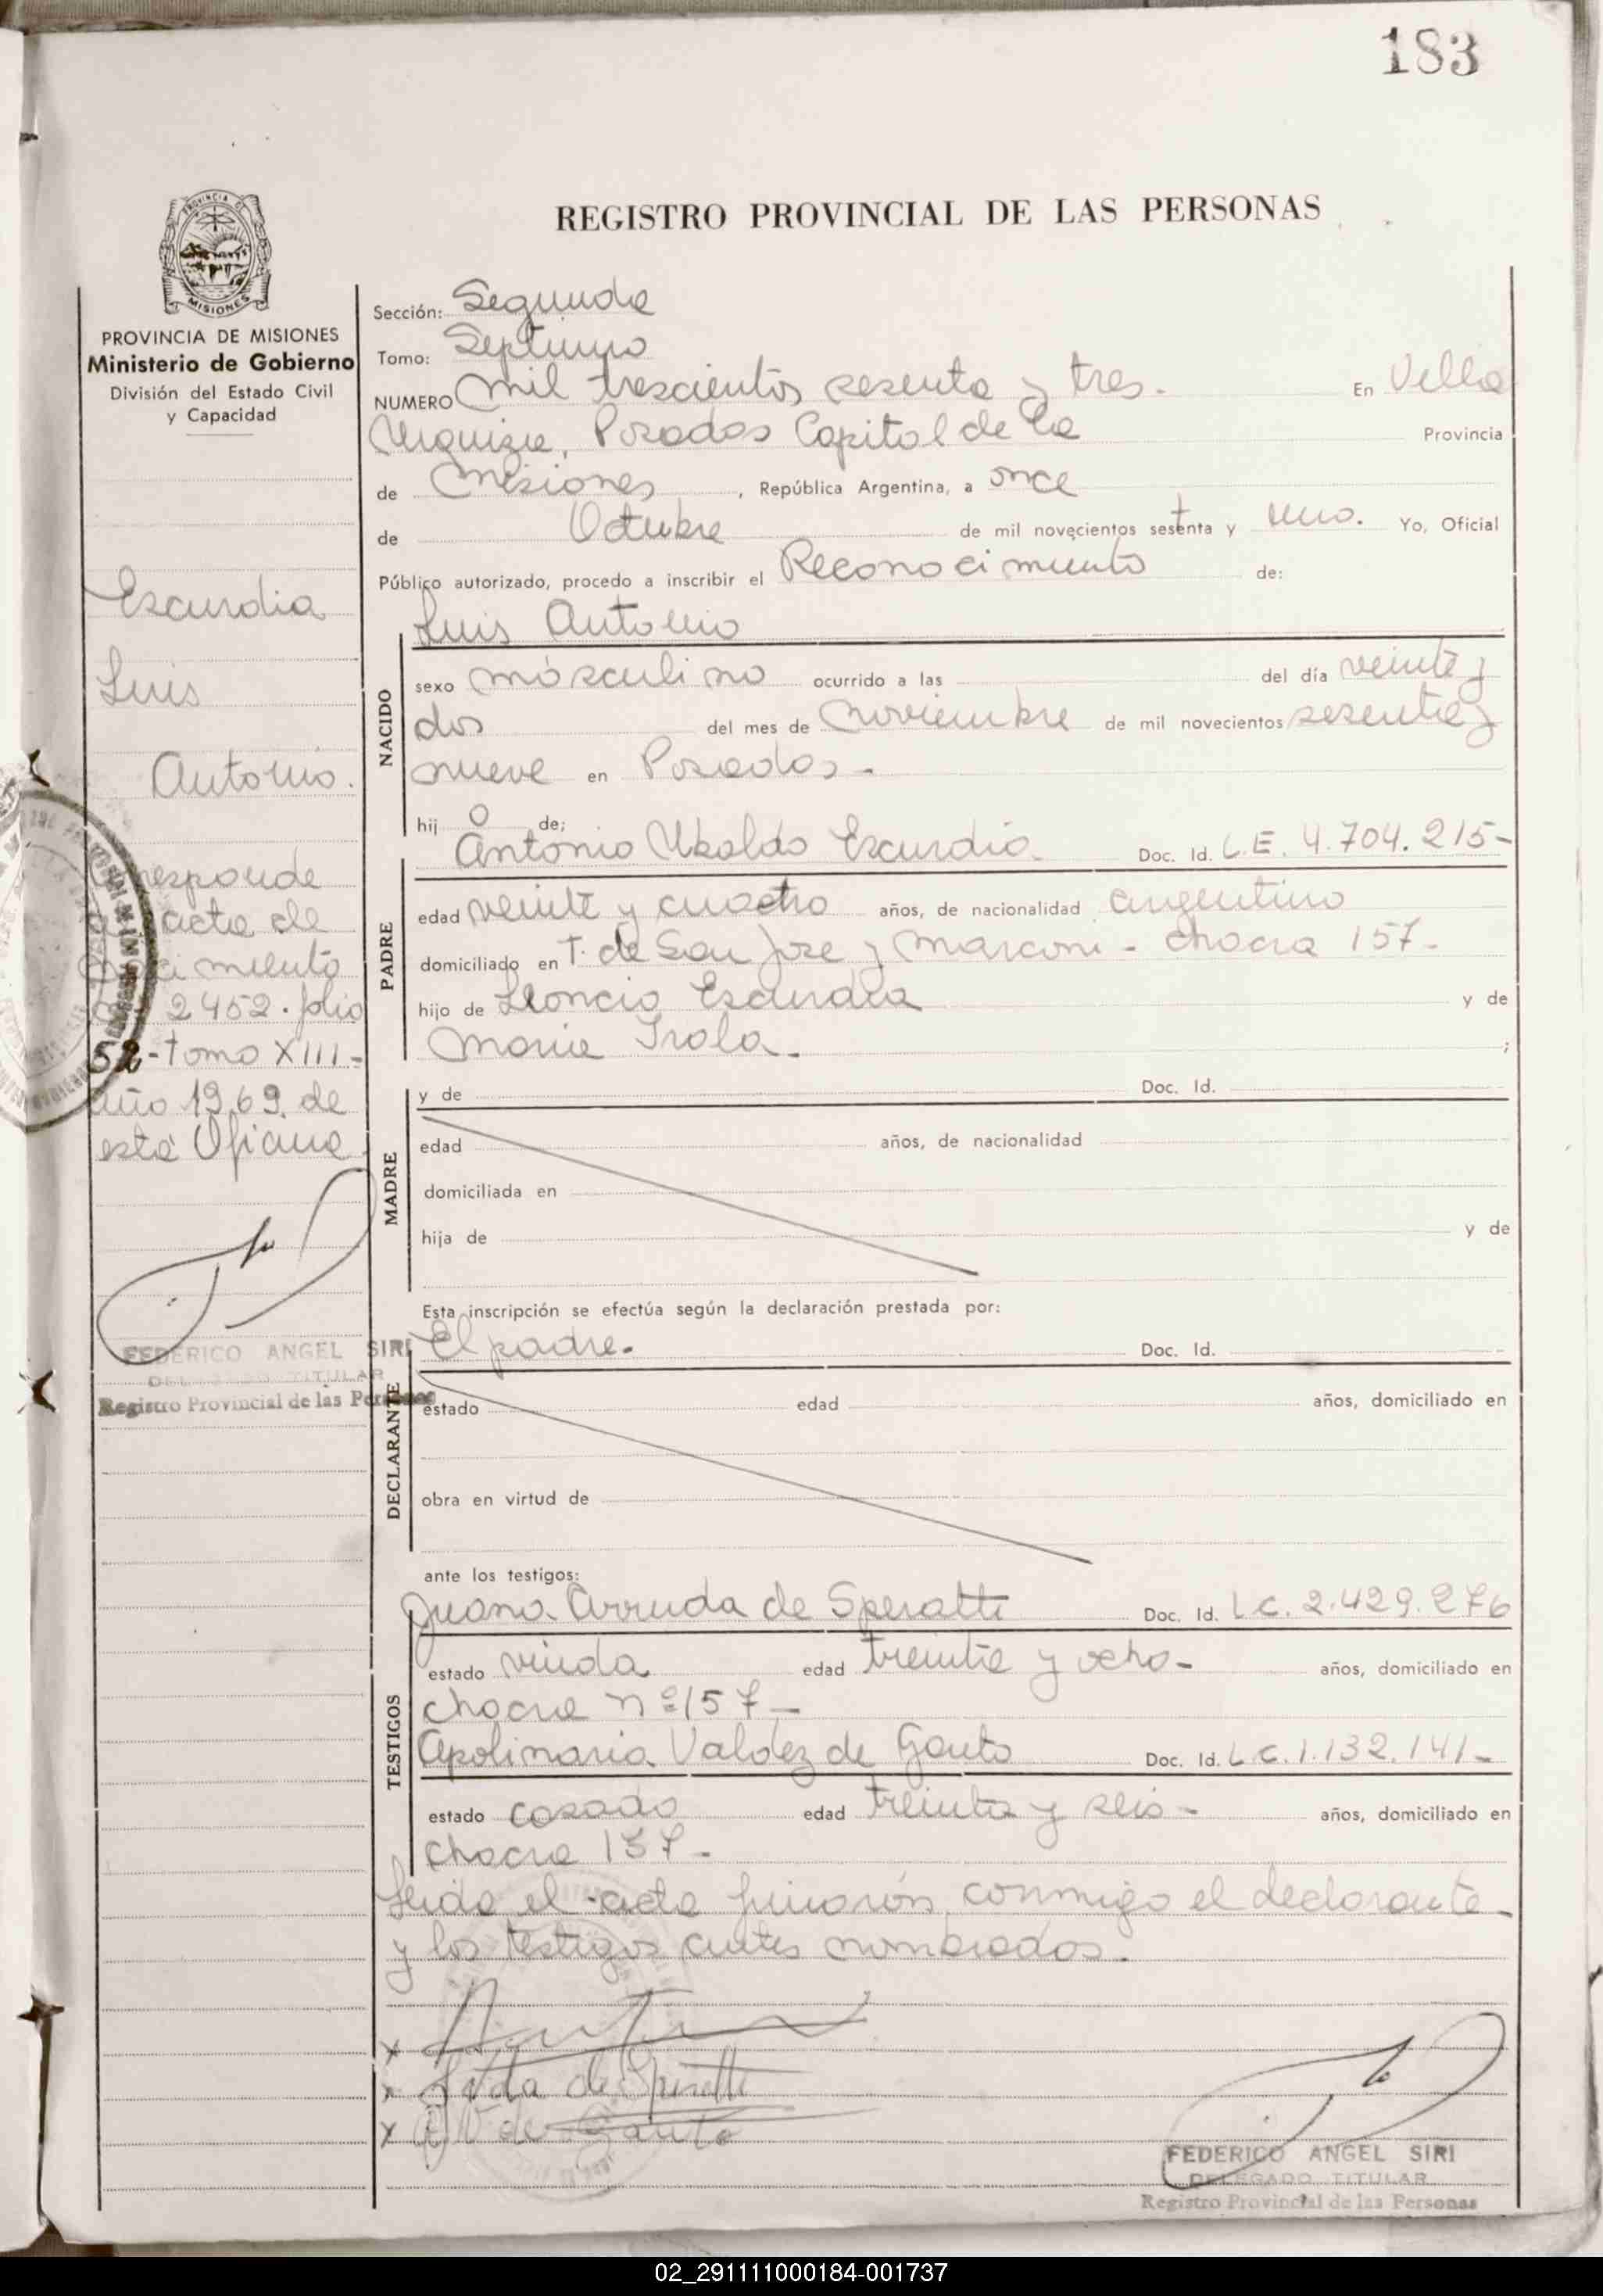 183
REGISTRO PROVINCIAL DE LAS PERSONAS
PROVINCIA DE MISIONES
Ministerio de Gobierno
División del Estado Civil
y Capacidad
Escurdia
Luis
Antonio.
Corresponde
acta de
nacimiento
2452. folio
52 - tomo XIII -
año 1969 de
esta Oficina
FEDERICO ANGEL SIRI
DELEGADO TITULAR
Registro Provincial de las Personas
Sección: Segunda
Tomo: Septimo
NUMERO Mil trescientos sesenta y tres. En Villa
Urquiza, Posadas Capital de la Provincia
de Misiones, República Argentina, a once
de Octubre de mil novecientos setenta y uno. Yo, Oficial
Público autorizado, procedo a inscribir el Reconocimiento de:
Luis Antonio
NACIDO
sexo másculino ocurrido a las del día veinte y
dos del mes de Noviembre de mil novecientos sesenta y
nueve en Posadas -
hijo de;
Antonio Ubaldo Escurdia Doc. Id. L.E. 4.704.215-
PADRE
edad veinte y cuatro años, de nacionalidad argentino
domiciliado en T. de San Jose y Marconi - chacra 157-
hijo de Leoncio Escurdia y de
Maria Irala - ;
MADRE
y de Doc. Id.
edad años, de nacionalidad
domiciliada en
hija de y de
Esta inscripción se efectúa según la declaración prestada por:
El padre. Doc. Id.
DECLARANTE
estado edad años, domiciliado en
obra en virtud de
ante los testigos:
Juana Arruda de Speratti Doc. Id. L.C. 2.429.276
TESTIGOS
estado viuda edad treinta y ocho - años, domiciliado en
chacra nº 157 -
Apolinaria Valdez de Gauto Doc. Id. L.C. 1.132.141-
estado casada edad treinta y seis - años, domiciliado en
chacra 157 -
Leida el acta firmarón conmigo el declarante
y los testigos antes nombrados.
x
x de Speratti
x A V de Gauto
FEDERICO ANGEL SIRI
DELEGADO TITULAR
Registro Provincial de las Personas
02_291111000184-001737